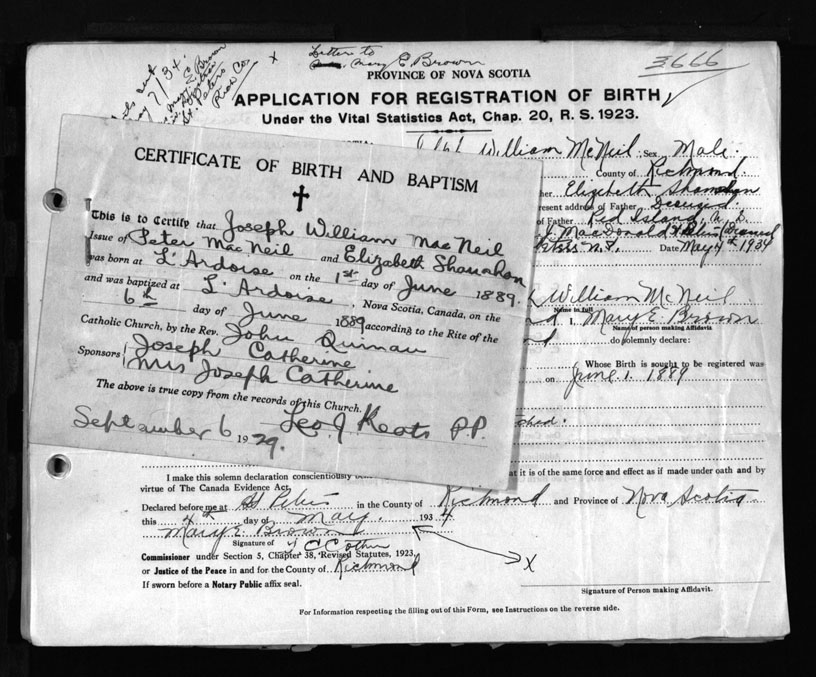 Letter to
Mary E Brown
3666
PROVINCE OF NOVA SCOTIA
APPLICATION FOR REGISTRATION OF BIRTH
Under the Vital Statistics Act, Chap. 20, R. S. 1923.
May 7/34.
Mary E Brown
St Peters
Rich Co.
William McNeil Sex Male.
County of Richmond.
Elizabeth Shanahan
present address of Father Deceased
of Father Red Island, N. S.
MacDonald
N.S. Date May 4th 1934
CERTIFICATE OF BIRTH AND BAPTISM
This is to Certify that Joseph William MacNeil
Issue of Peter MacNeil and Elizabeth Shanahan
was born at L'Ardoise on the 1st day of June 1889.
and was baptized at L'Ardoise, Nova Scotia, Canada, on the
6th day of June 1889 according to the Rite of the
Catholic Church, by the Rev. John Quinan
Sponsors Joseph Catherine
Mrs Joseph Catherine
The above is true copy from the records of this Church.
September 6 1929. Leo J Keats P.P.
William McNeil
Name in full
I, Mary E. Brown
Name of person making Affidavit
do solemnly declare:
Whose Birth is sought to be registered was
on June 1. 1889
I make this solemn declaration conscientiously
it is of the same force and effect as if made under oath and by
virtue of The Canada Evidence Act.
Declared before me at St Peters in the County of Richmond and Province of Nova Scotia
this 4th day of May. 1934
Mary E. Brown
Signature of
X
Commissioner under Section 5, Chapter 38, Revised Statutes, 1923,
or Justice of the Peace in and for the County of Richmond
If sworn before a Notary Public affix seal.
Signature of Person making Affidavit.
For Information respecting the filling out of this Form, see Instructions on the reverse side.